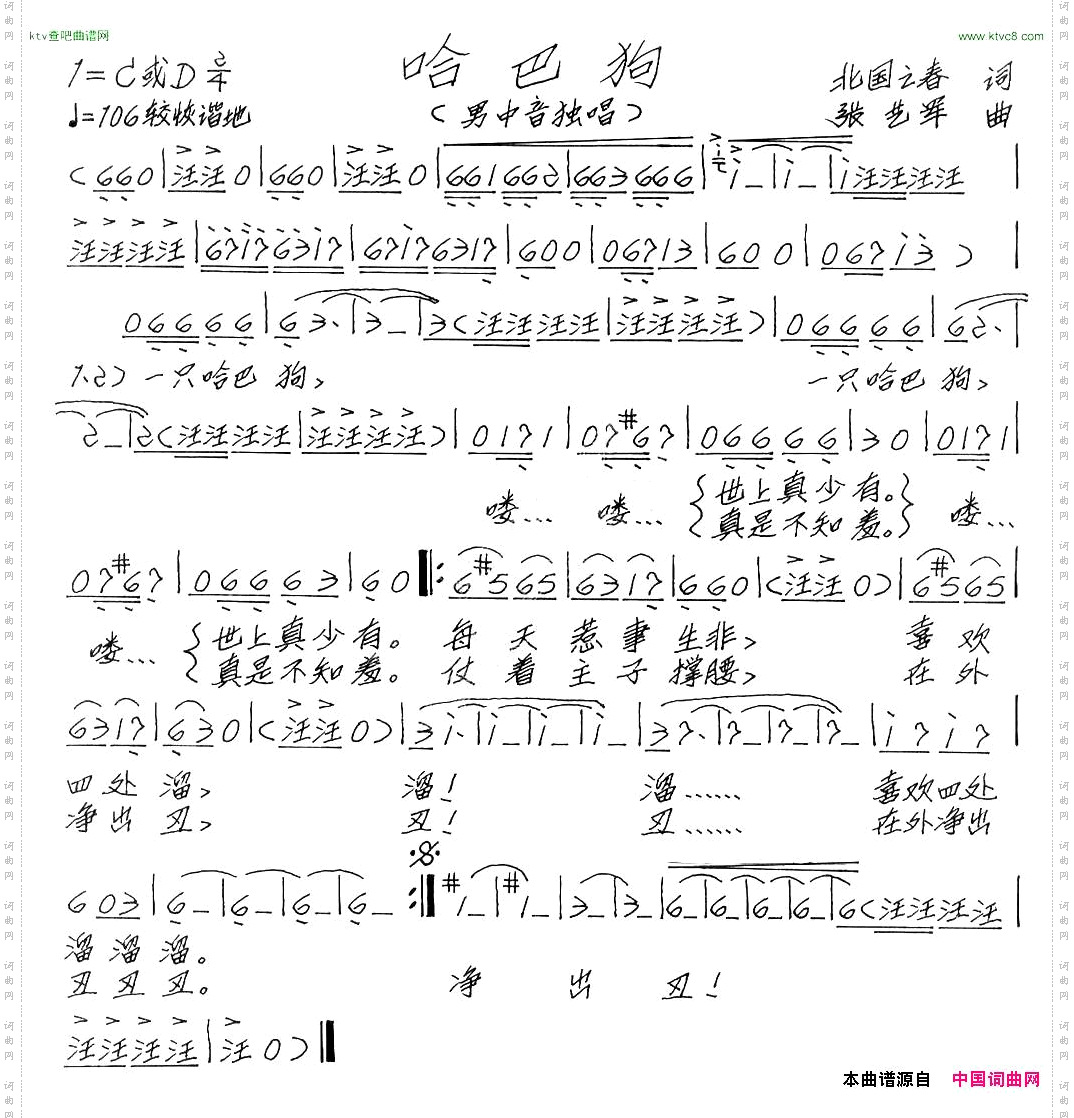 ktv查吧曲谱网 www.ktvc8.com
哈巴狗
1=C或D 2/4 北国之春 词
♩=106较快谐地 (男中音独唱) 张艺军 曲
(660|汪汪0|660|汪汪0|661662|663666|i_|i_|i汪汪汪汪|
汪汪汪汪|67i763i7|67i76317|600|06713|600|067i3)|
06666|63·|3_|3(汪汪汪汪|汪汪汪汪)|06666|62·|
1.2)一只哈巴狗, 一只哈巴狗,
2_|2(汪汪汪汪|汪汪汪汪)|0171|07#67|06666|30|0171|
喽… 喽… {世上真少有。} 喽…
{真是不知羞。}
07#67|06663|60‖:6#565|6317|660|(汪汪0)|6#565|
喽… {世上真少有。 每天惹事生非, 喜欢
{真是不知羞。 仗着主子撑腰, 在外
6317|630|(汪汪0)|3i·|i_|i_|i_|37·|7_|7_|7_|i7i7|
四处溜, 溜! 溜…… 喜欢四处
净出丑, 丑! 丑…… 在外净出
603|6_|6_|6_|6_:‖#1_|#1_|3_|3_|6_|6_|6_|6_|6(汪汪汪汪|
溜溜溜。
丑丑丑。 净出丑!
汪汪汪汪|汪0)‖
本曲谱源自 中国词曲网